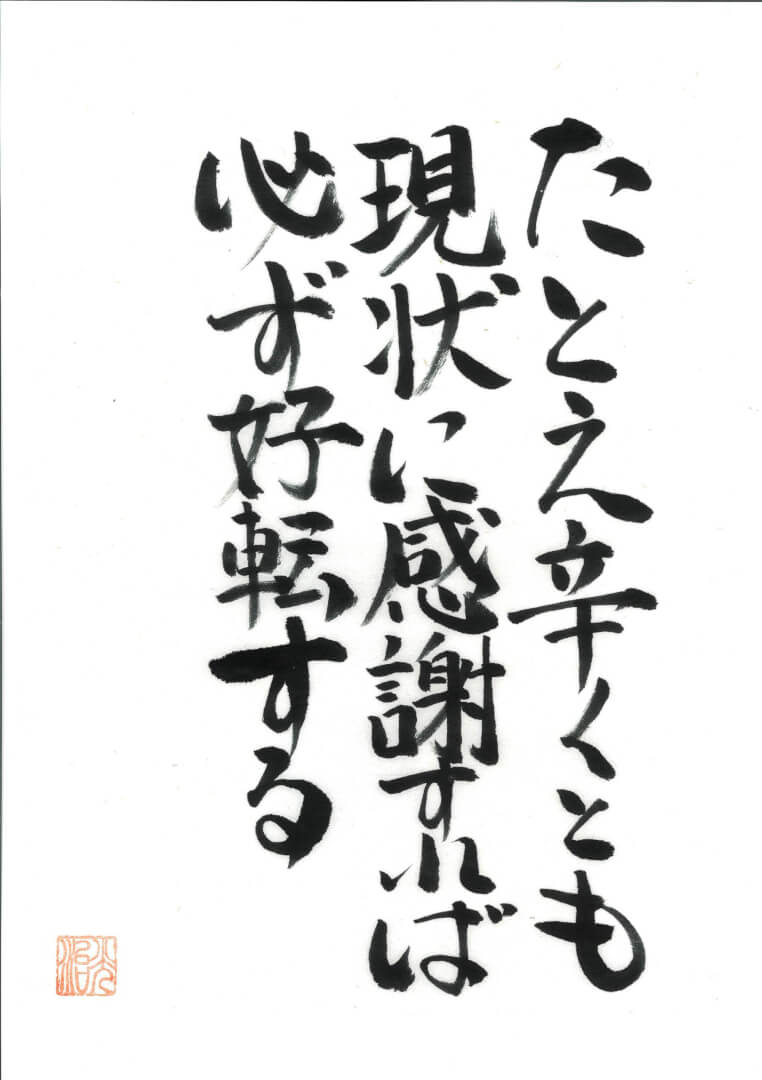 たとえ辛くとも
現状に感謝すれば
必ず好転する